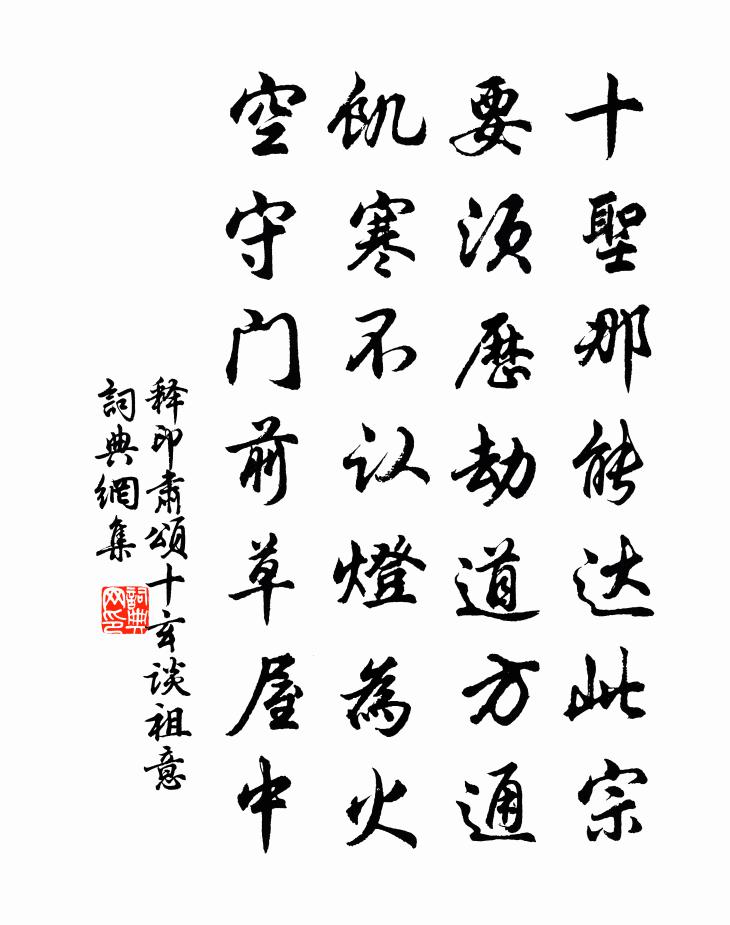 十聖那能达此宗
要须歷劫道方通
飢寒不认燈為火
空守门前草屋中
释印肃頌十玄谈祖意
詞典網集
詞典网印